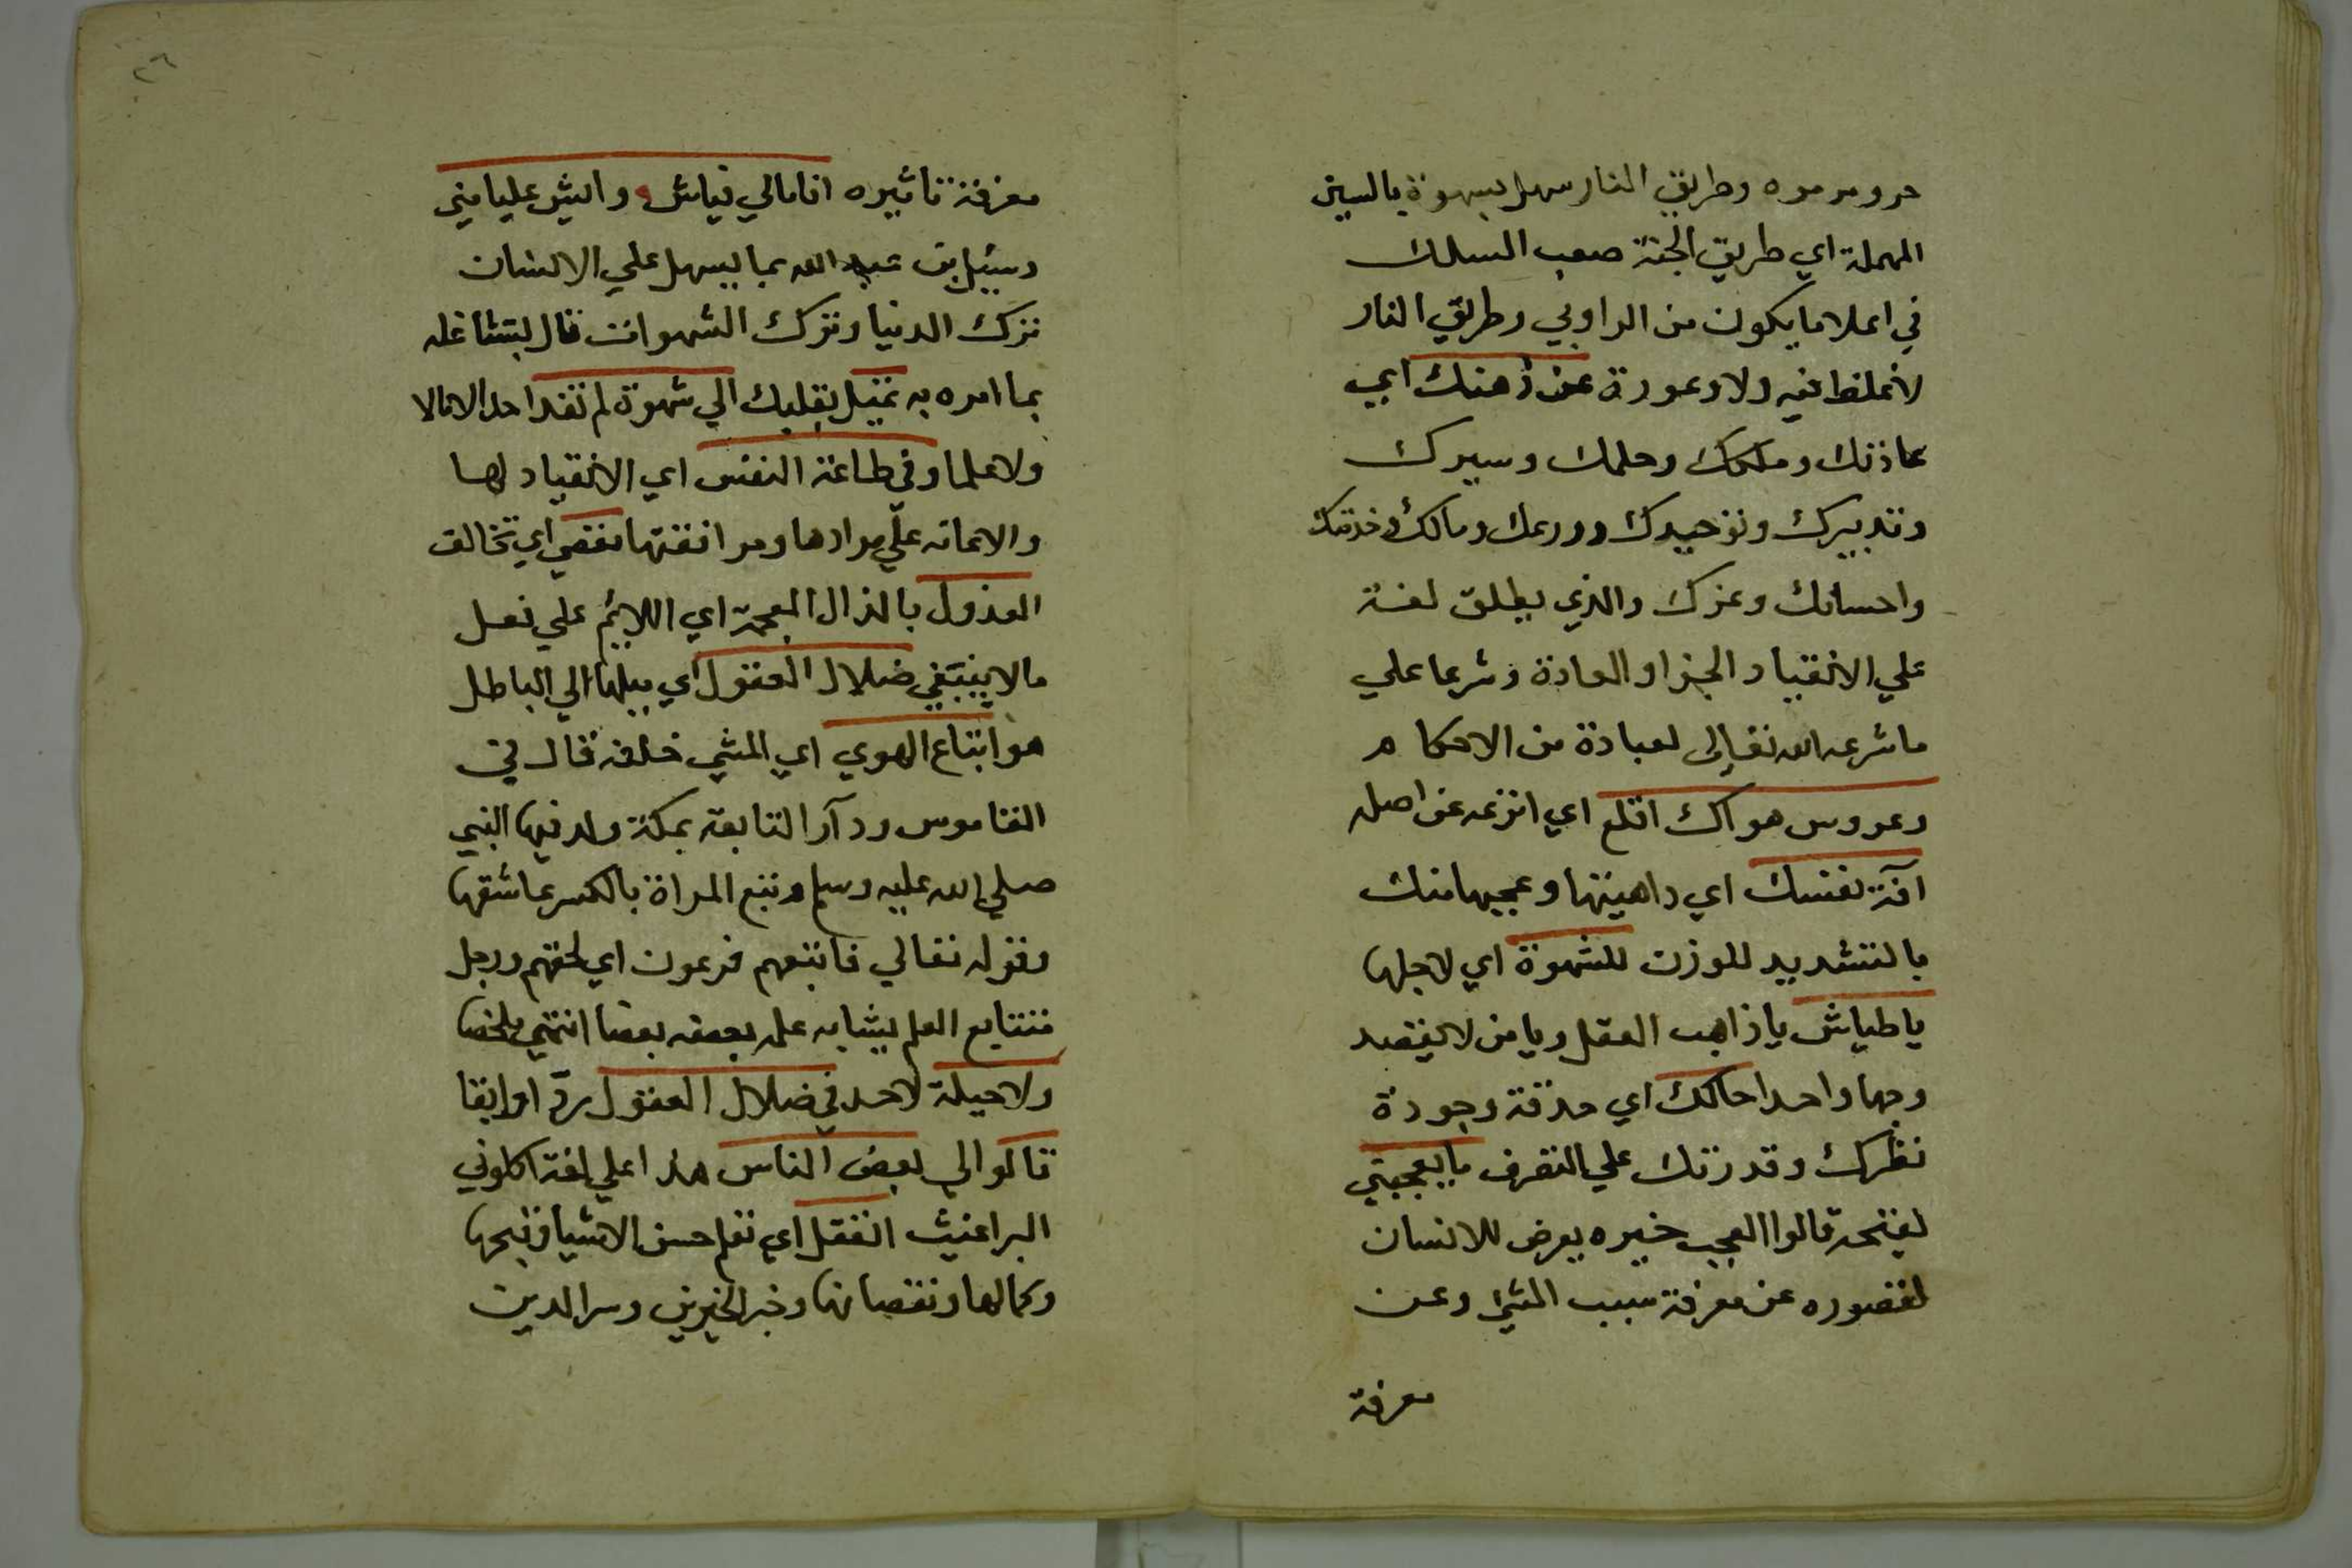 وطريق النار سهل بسهوة بالسين
المهملة اي طريق الجنة صعب السلك
في اعلا ما يكون من الروابي وطريق النار
لا غلظ فيه ولا وعورة عن ذهنك اي
عاذتك وملكك وحلمك وسيرك
وتدبيرك وتوحيدك وورعك ومالك وخدمتك
واحسانك وعزك والذي يطلق لغة
علي الانقياد والجزا والعادة وشرعا علي
ما شرعه الله تعالى لعباده من الاحكام
وعروس هواك اقلع اي انزعه عن اصله
آفة نفسك اي داهيتها وعجبها منك
بالتشديد للوزن للشهوة اي لاجلها
ياطياش يا ذاهب العقل ويا من لا يقصد
وجها واحدا حالك اي حذقة وجودة
نظرك وقدرتك علي التصرف ما يعجبني
لفتحة قالوا العجب حيره يعرض للانسان
لقصوره عن معرفة سبب الشئ وعن
معرفة
٢٦
معرفة تاثيره انا مالي فياش وايش عليا مني
وسئيل بن عبد الله بما يسهل علي الانسان
ترك الدنيا وترك الشهوات قال بتشاغله
بما امره به تميل بقلبك الي شهوة لم تفد احدا لا مالا
ولا علما وفي طاعة النفس اي الانقياد لها
والاعانه علي مرادها وموافقتها تعصي اي تخالف
العذول بالذال المعجمة اي اللايم علي فعل
ما لا ينبغي ضلال العقول اي ميلها الي الباطل
هو اتباع الهوي اي المشي خلفه قال في
القاموس ودار التابعة بمكة ولد فيها النبي
صلي الله عليه وسلم وتبع المراة بالكسر عاشقها
وقوله تعالي فاتبعهم فرعون اي لحقهم ورجل
متتابع العلم يشابه علمه بعضه بعضا انتهي ملخصا
ولا حيلة لاحد في ضلال العقول رد اوابقا
قالوا لي بعض الناس هذا علي لغة اكلوني
البراغيث انفقل اي تعلم حسن الاشيا وقبحها
وكمالها ونقصانها وخير الخيرين وسر الدين